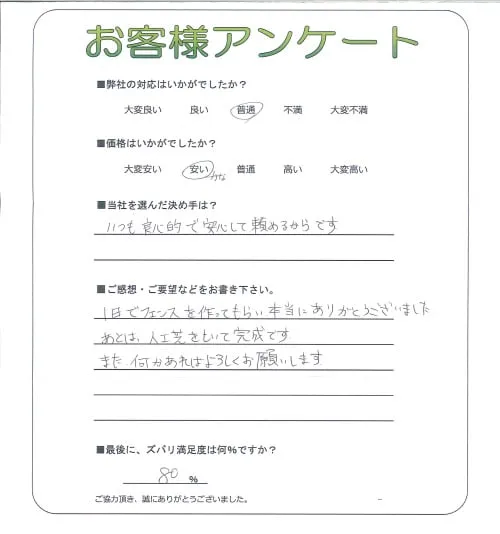 お客様アンケート
■弊社の対応はいかがでしたか？
大変良い 良い 普通 不満 大変不満
■価格はいかがでしたか？
大変安い 安い 普通 高い 大変高い
かな
■当社を選んだ決め手は？
いつも良心的で安心して頼めるからです
■ご感想・ご要望などをお書き下さい。
1日でフェンスを作ってもらい本当にありがとうございました
あとは、人工芝をしいて完成です
また何かあればよろしくお願いします
■最後に、ズバリ満足度は何%ですか？
80 %
ご協力頂き、誠にありがとうございました。